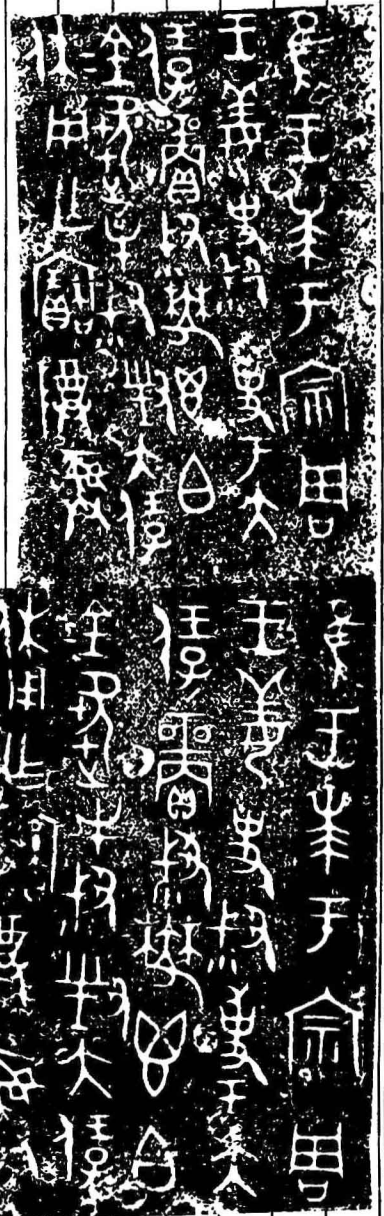 隹王𠦪于宗周
王姜史叔事于大
保賞叔鬱鬯白
金牛叔對大保
休用乍寶尊彝
隹王𠦪于宗周
王姜史叔事于大
保賞叔鬱鬯白
金牛叔對大保
休用乍寶尊彝